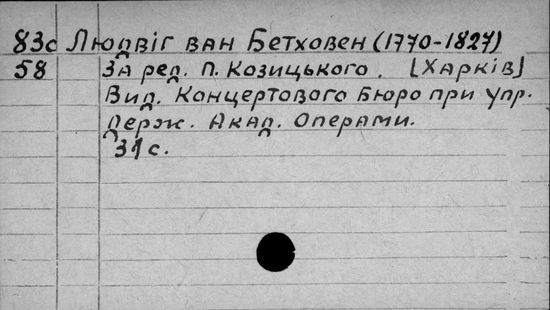 83с Людвіг ван Бетховен (1770-1827)
58 За ред. П. Козицького. [Харків]
Вид. Концертового Бюро при упр.
Держ. Акад. Операми.
31 с.